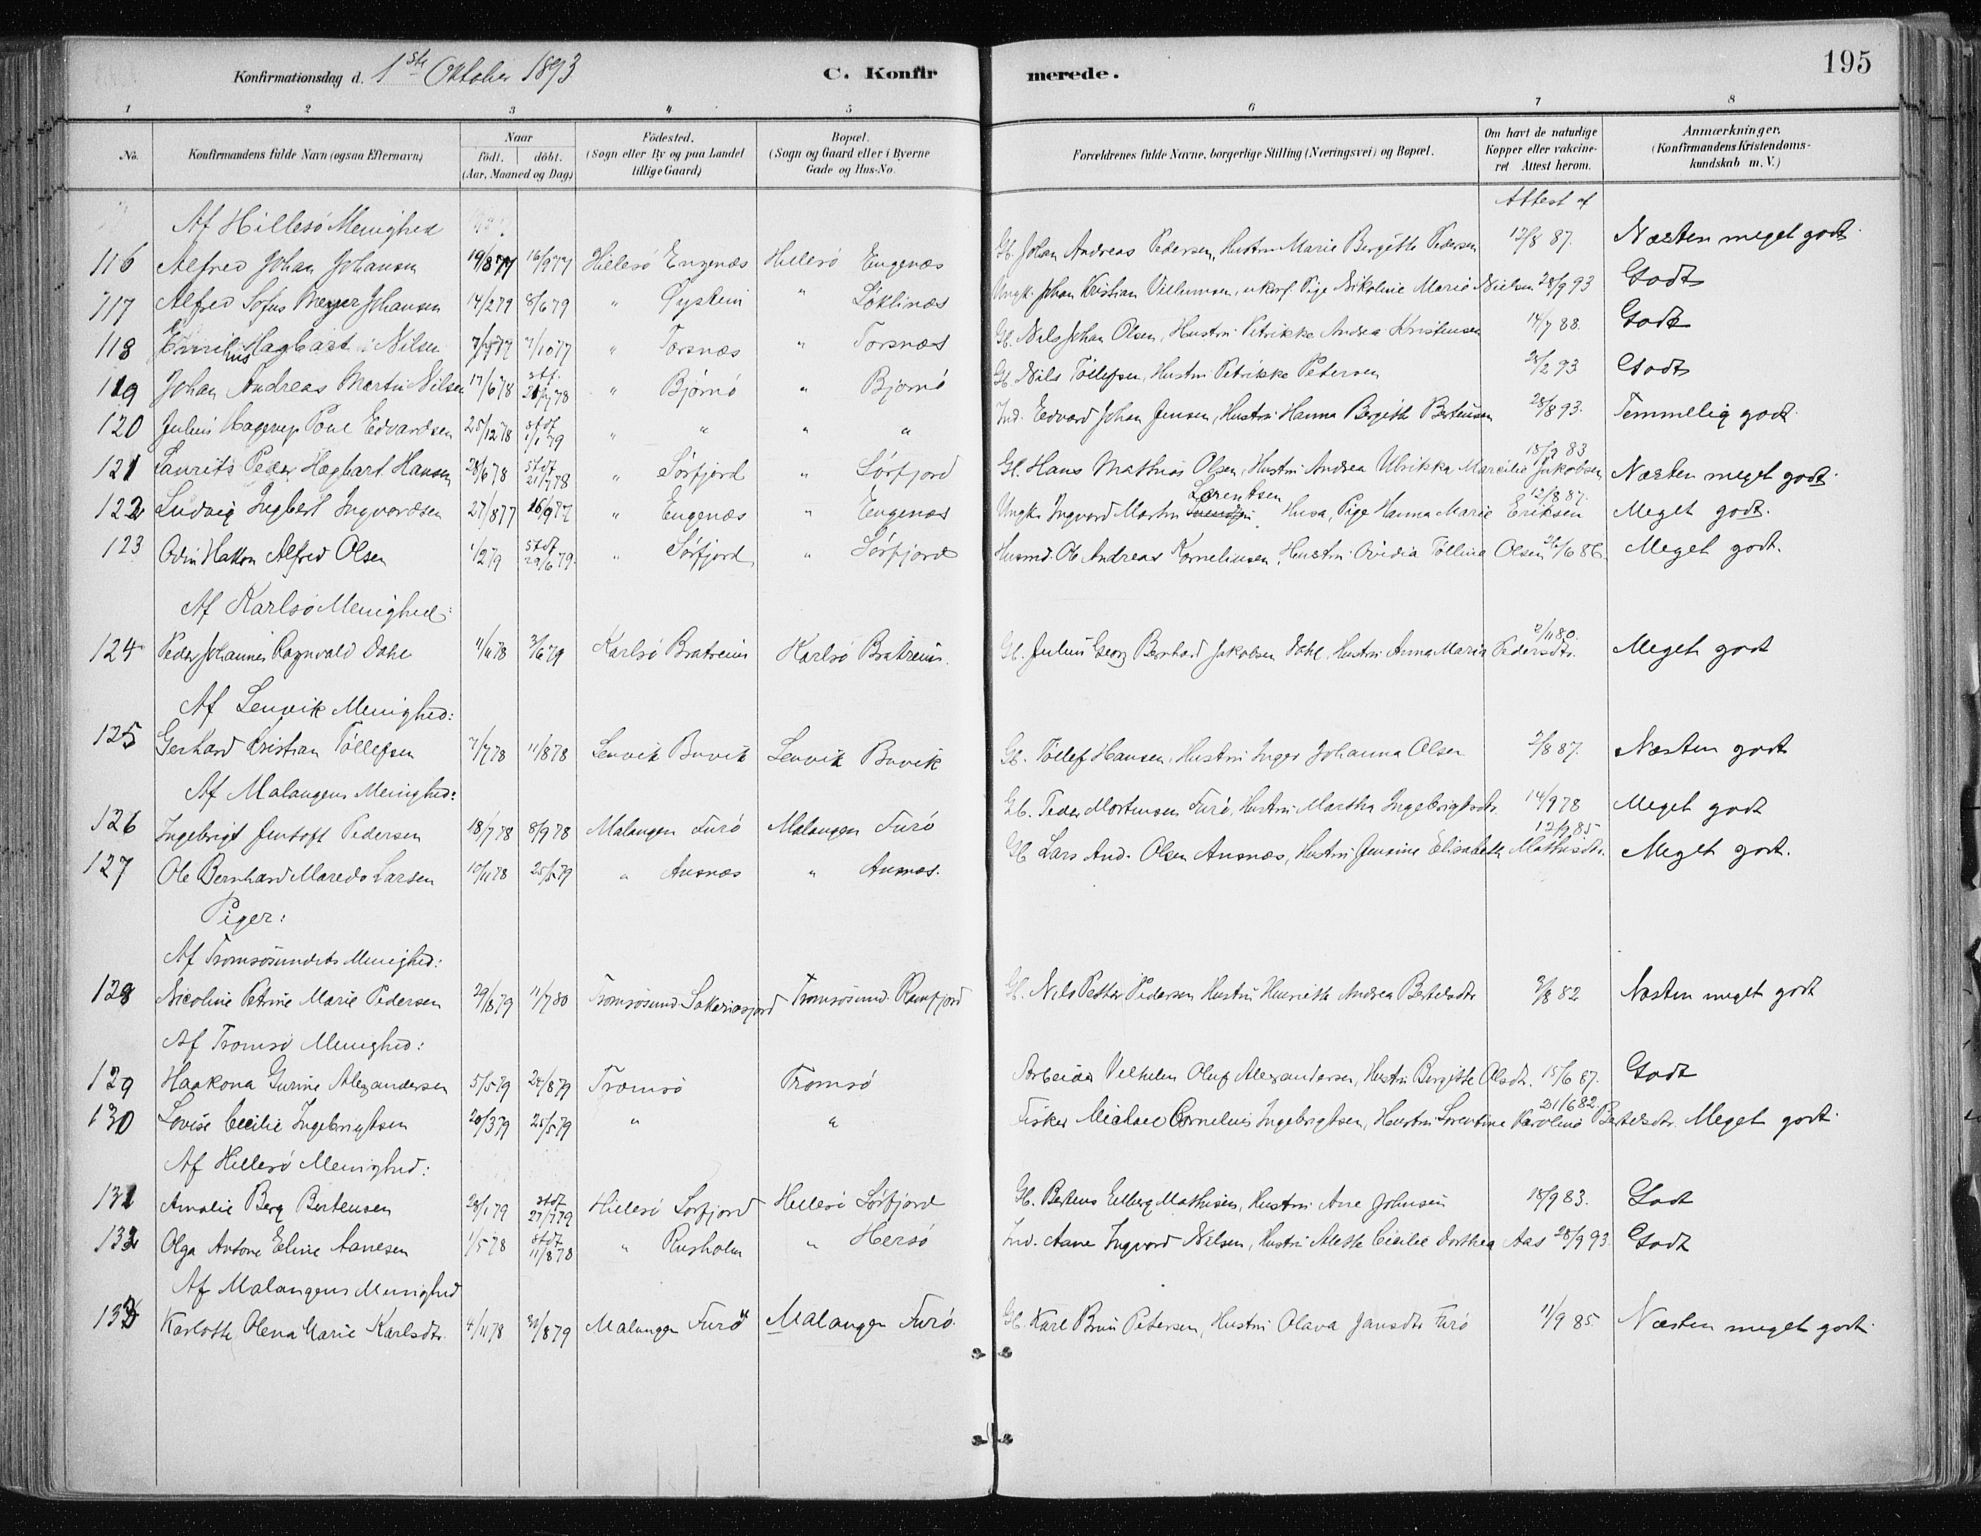 Konfirmationsdag d. 1ste Oktober 1893 C. Konfir merede. 195
1 2 3 4 5 6 7 8
No. Konfirmandens fulde Navn (ogsaa Efternavn) Naar födt. döbt. (Aar, Maaned og Dag) Födested. (Sogn eller By og paa Landet tillige Gaard) Bopæl. (Sogn og Gaard eller i Byerne Gade og Hus-No. Forældrenes fulde Navne, borgerlige Stilling (Næringsvei) og Bopæl. Om havt de naturlige Kopper eller vakcineret Attest herom. Anmærkninger. (Konfirmandens Kristendomskundskab m. V.)
Attest af
Af Hillesö Menighed
116 Alfred Johan Johansen 19/8 77 16/9 77 Hillesö Engenæs Hillesö Engenæs Gb. Johan Andreas Pedersen, Hustru Marie Bergitte Pedersen 12/8 87. Næsten meget godt.
117 Alfred Sofus Meyer Johansen 14/2 79 8/6 79 " Öystein " Löklinæs Ungk. Johan Kristian Villumsen, ukonf. Pige Nikoline Marie Nielsen 28/9 93 Godt
118 Emilius Hagbart Nilsen 7/10 77 " Torsnæs " Torsnæs Gb. Nils Johan Olsen, Hustru Petrikke Andrea Kristensen 14/7 88. Godt
119 Johan Andreas Martin Nilsen 17/6 78 stf. 21/7 78 " Björnö " Björnö Gb. Nils Töllefsen, Hustru Petrikke Petersen 28/2 93 Godt
120 Julius Hagerup Povl Edvardsen 25/12 78 stdf 1/1 79 " " " " Ind. Edvard Johan Jensen, Hustru Hanna Bergitte Bertensen 28/8 93. Temmelig godt.
121 Laurits Peder Hagbart Hansen 28/6 78 stdf 21/7 78 " Sörfjord " Sörfjord Gl. Hans Mathias Olsen, Hustru Andrea Ulrikka Marcilie Jakobsen 18/9 83 Næsten meget godt.
122 Ludvig Ingbert Ingvardsen 27/8 77 16/9 77 " Engenæs " Engenæs Ungk. Ingvard Martin Lorentsen Husa, Pige Hanna Marie Eriksen 12/8 87. Meget godt.
123 Odin Hakon Alfred Olsen 1/2 79 stdf 29/6 79. " Sörfjord " Sörfjord Husmd. Ole Andreas Korneliusen, Hustru Ovidia Töllina Olsen 26/6 86. Meget godt.
Af Karlsö Menighed:
124 Peder Johannes Ragnvald Dahl 11/11 78 3/6 79 Karlsö Bratrein Karlsö Bratrein. Gb. Julius Georg Bernhard Jakobsen Dahl, Hustru Anna Maria Pedersdtr. 2/11 80. Meget godt
Af Lenvik Menighed:
125 Gerhard Kristian Töllefsen 7/7 78 11/8 78 Lenvik Buvik Lenvik Buvik Gb. Töllef Hansen, Hustru Inger Johanna Olsen 2/8 87. Næsten godt
Af Malangens Menighed:
126 Ingebrigt Jentoft Pedersen 18/7 78 8/9 78 Malangen Furö Malangen Furö Gb. Peder Mortensen Furö, Hustru Martha Ingebrigtsdtr. 14/9 78 Meget godt
127 Ole Bernhard Maredo Larsen 10/11 78 25/5 79 " Ansnæs " Ansnæs. Gb Lars And. Olsen Ansnæs, Hustru Jensine Elisabeth Mathisdtr. 12/9 85 Meget godt.
Piger:
Af Tromsösundets Menighed:
128 Nicoline Petrine Marie Pedersen 29/8 79 11/7 80 Tromsösund Sakariasjord Tromsösund Ramfjord Gb. Nils Petter Pedersen Hustru Henriette Andrea Bertelsdtr 2/8 82 Næsten meget godt
Af Tromsö Menighed:
129 Haakona Gurine Alexandersen 5/5 79 24/8 79 Tromsö Tromsö Arbeider Vilhelm Oluf Alexandersen, Hustru Bergitte Olsdtr. 15/6 87. Godt
130 Lovise Cecilie Ingebrigtsen 20/3 79 25/5 79 " " Fisker Michael Cornelius Ingebrigtsen, Hustru Lorentine Karoline Bertelsdtr. 21/6 82. Meget godt.
Af Hillesö Menighed:
131 Amalie Berg Bertensen 28/1 79 stdf 27/7 79 Hillesö Sörfjord Hillesö Sörfjord Gb. Bertens Elberg Mathisen, Hustru Ane Johnsen 18/9 83. Godt
132 Olga Antone Eline Aanesen 1/5 78 stdf 11/8 78 " Rusholm " Hersö Ind. Aane Ingvard Nilsen, Hustru Mette Cecilie Dorthea Aas 28/9 93. Godt
Af Malangens Menighed
133 Karlotte Olena Marie Karlsdtr. 4/11 78 31/8 79 Malangen Furö Malangen Furö. Gb. Karl Brun Petersen, Hustru Olava Jansdtr Furö 11/9 85. Næsten meget godt.